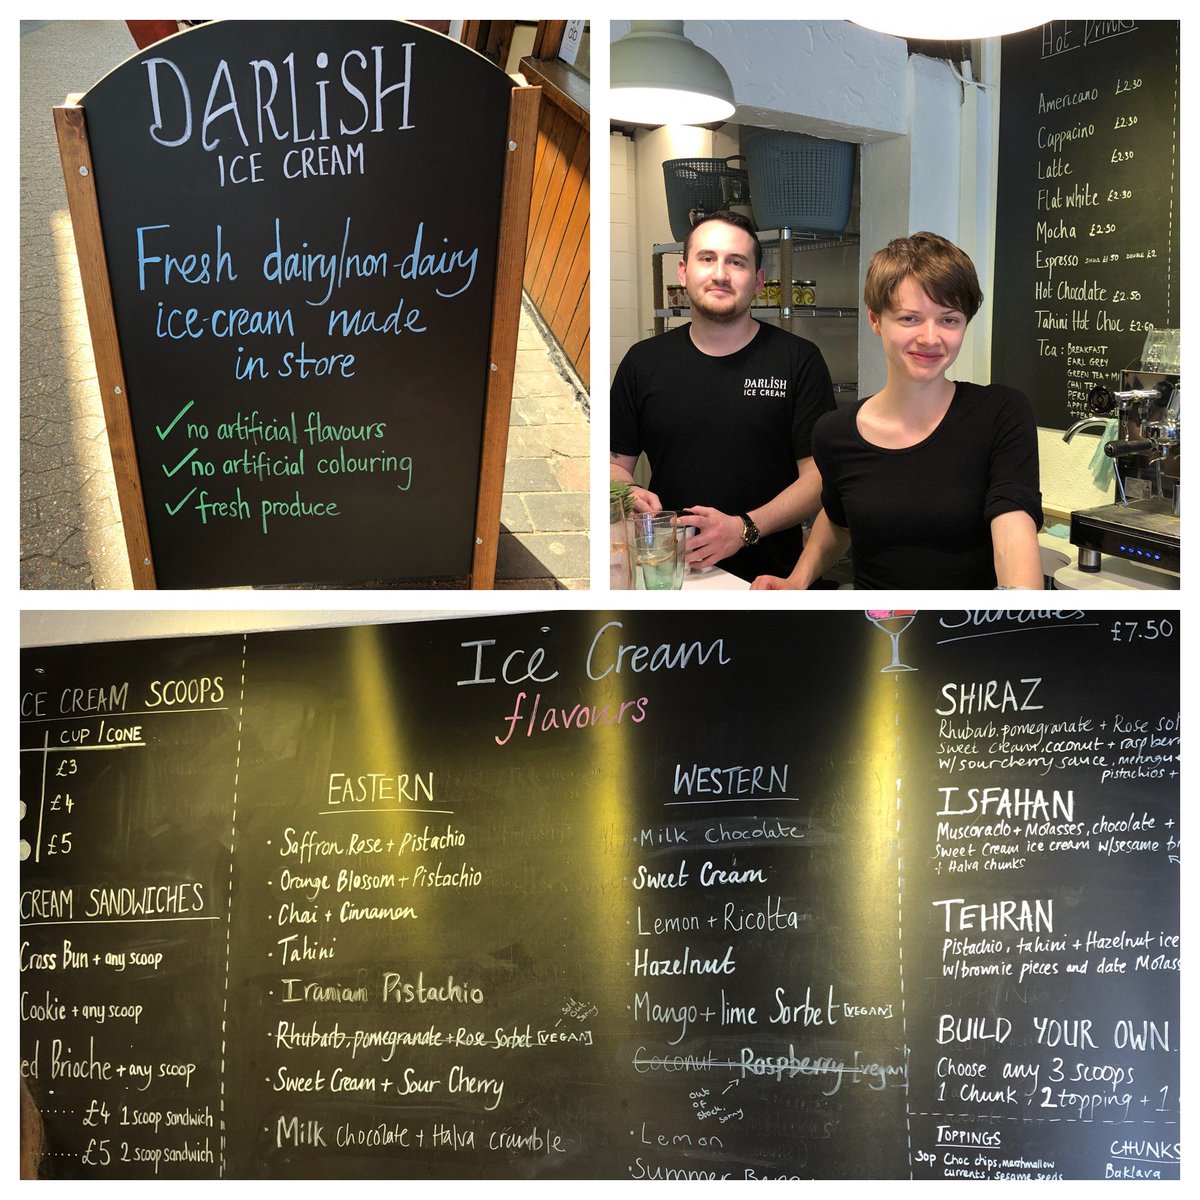 DARLISH
ICE CREAM
Fresh dairy/non-dairy
ice-cream made
in store
✓ no artificial flavours
✓ no artificial colouring
✓ fresh produce
DARLISH
ICE CREAM
Hot Drinks
Americano £2.30
Cappacino £2.30
Latte £2.30
Flat white £2.30
Mocha £2.50
Espresso SINGLE £1.50 DOUBLE £2
Hot Chocolate £2.50
Tahini Hot Choc £2.60
Tea: BREAKFAST
EARL GREY
GREEN TEA + MI
CHAI TEA
PERSI
APPLE
CE CREAM SCOOPS
CUP / CONE
£3
£4
£5
CREAM SANDWICHES
Cross Bun + any scoop
Cookie + any scoop
ed Brioche + any scoop
...... £4 1 scoop sandwich
...... £5 2 scoop sandwich
Ice Cream
flavours
EASTERN
· Saffron, Rose + Pistachio
· Orange Blossom + Pistachio
· Chai + Cinnamon
· Tahini
· Iranian Pistachio
sold out, sorry
· Rhubarb, pomegranate + Rose Sorbet [VEGAN]
· Sweet Cream + Sour Cherry
· Milk Chocolate + Halva crumble
WESTERN
· Milk Chocolate
· Sweet Cream
· Lemon + Ricotta
· Hazelnut
· Mango + lime Sorbet [VEGAN]
· Coconut + Raspberry [vegan]
out of stock, sorry
· Lemon
· Summer
Sundaes
£7.50
SHIRAZ
Rhubarb, pomegranate + Rose
sweet cream, coconut + raspber
w/ sour cherry sauce, meringu
pistachios +
ISFAHAN
Muscovado + Molasses, chocolate +
Sweet Cream ice cream w/sesame
+ Halva chunks
TEHRAN
Pistachio, tahini + Hazelnut ice
w/brownie pieces and date Molass
BUILD YOUR OWN
Choose any 3 scoops
1 Chunk, 2 topping + 1
TOPPINGS
30p Choc chips, marshmallow
currents, sesame seeds
CHUNKS
Baklava